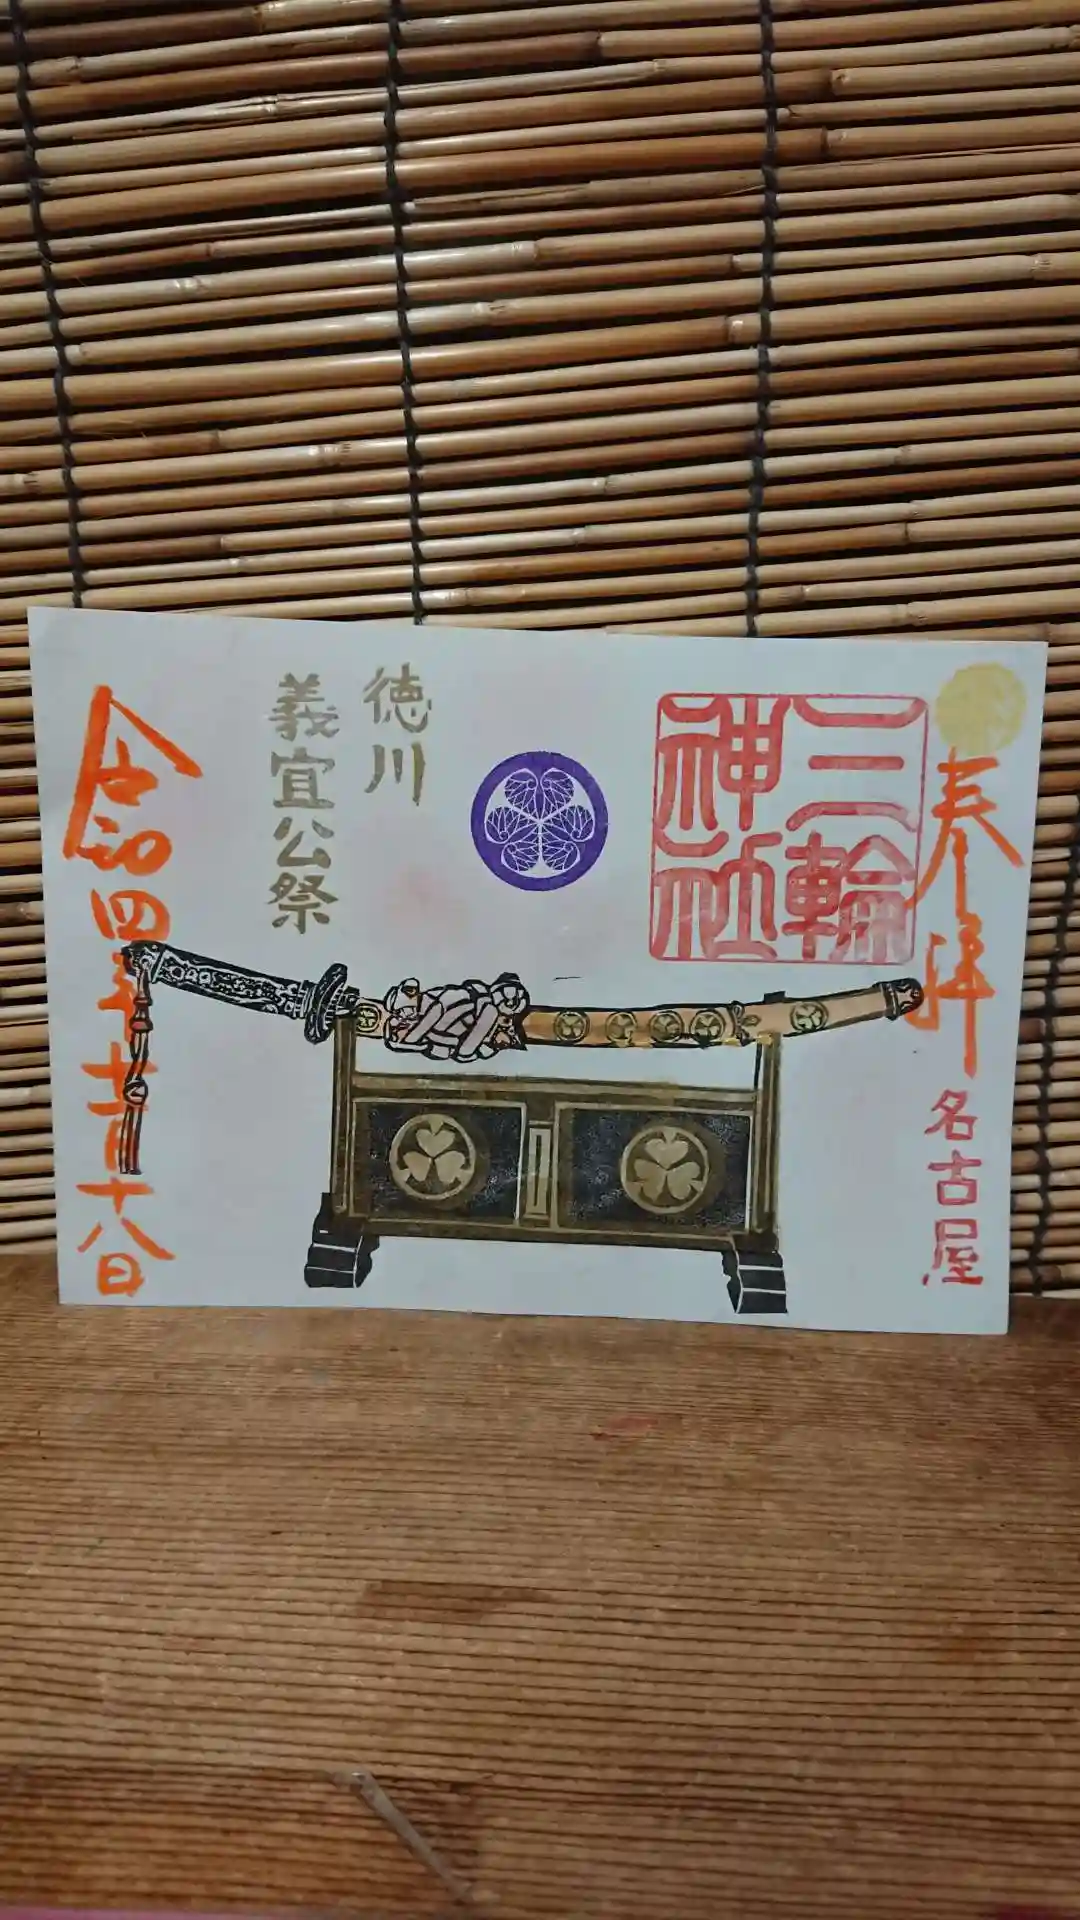 奉拝
名古屋
三輪
神社
徳川
義宜公祭
令和四年十一月十八日